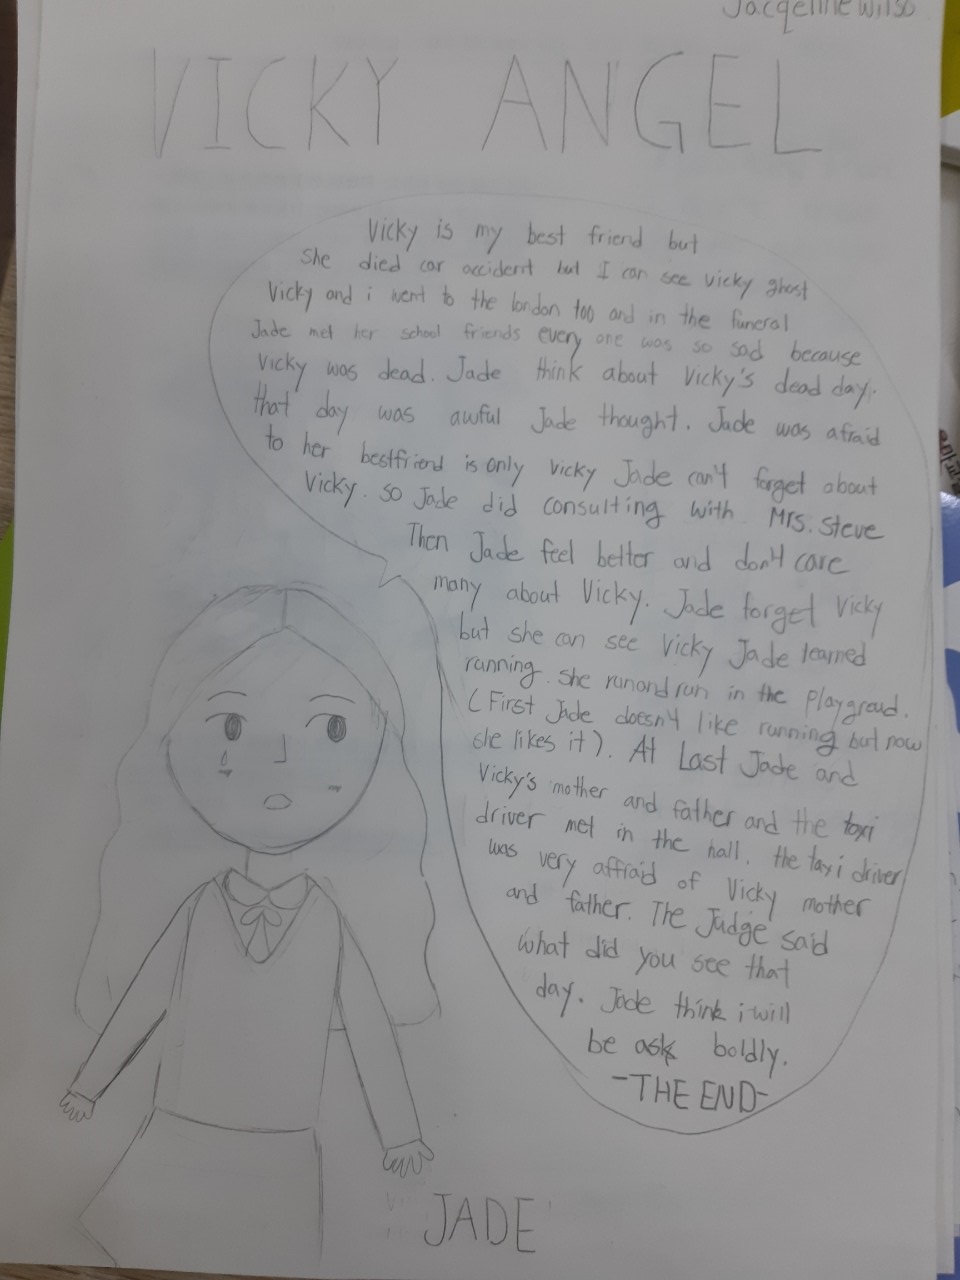 Jacqeline Wilso
VICKY ANGEL
Vicky is my best friend but
She died car accident but I can see vicky ghost
Vicky and i went to the london too and in the funeral
Jade met her school friends every one was so sad because
Vicky was dead. Jade think about Vicky's dead day.
that day was awful Jade thought. Jade was afraid
to her bestfriend is only Vicky Jade can't forget about
Vicky. so Jade did consulting with Mrs. Steve
Then Jade feel better and don't care
many about Vicky. Jade forget Vicky
but she can see Vicky Jade learned
running. she run and run in the playgroud.
(First Jade doesn't like running but now
she likes it). At Last Jade and
Vicky's mother and father and the taxi
driver met in the hall. the taxi driver
was very affraid of Vicky mother
and father. The Judge said
what did you see that
day. Jade think i will
be ask boldly.
-THE END-
JADE